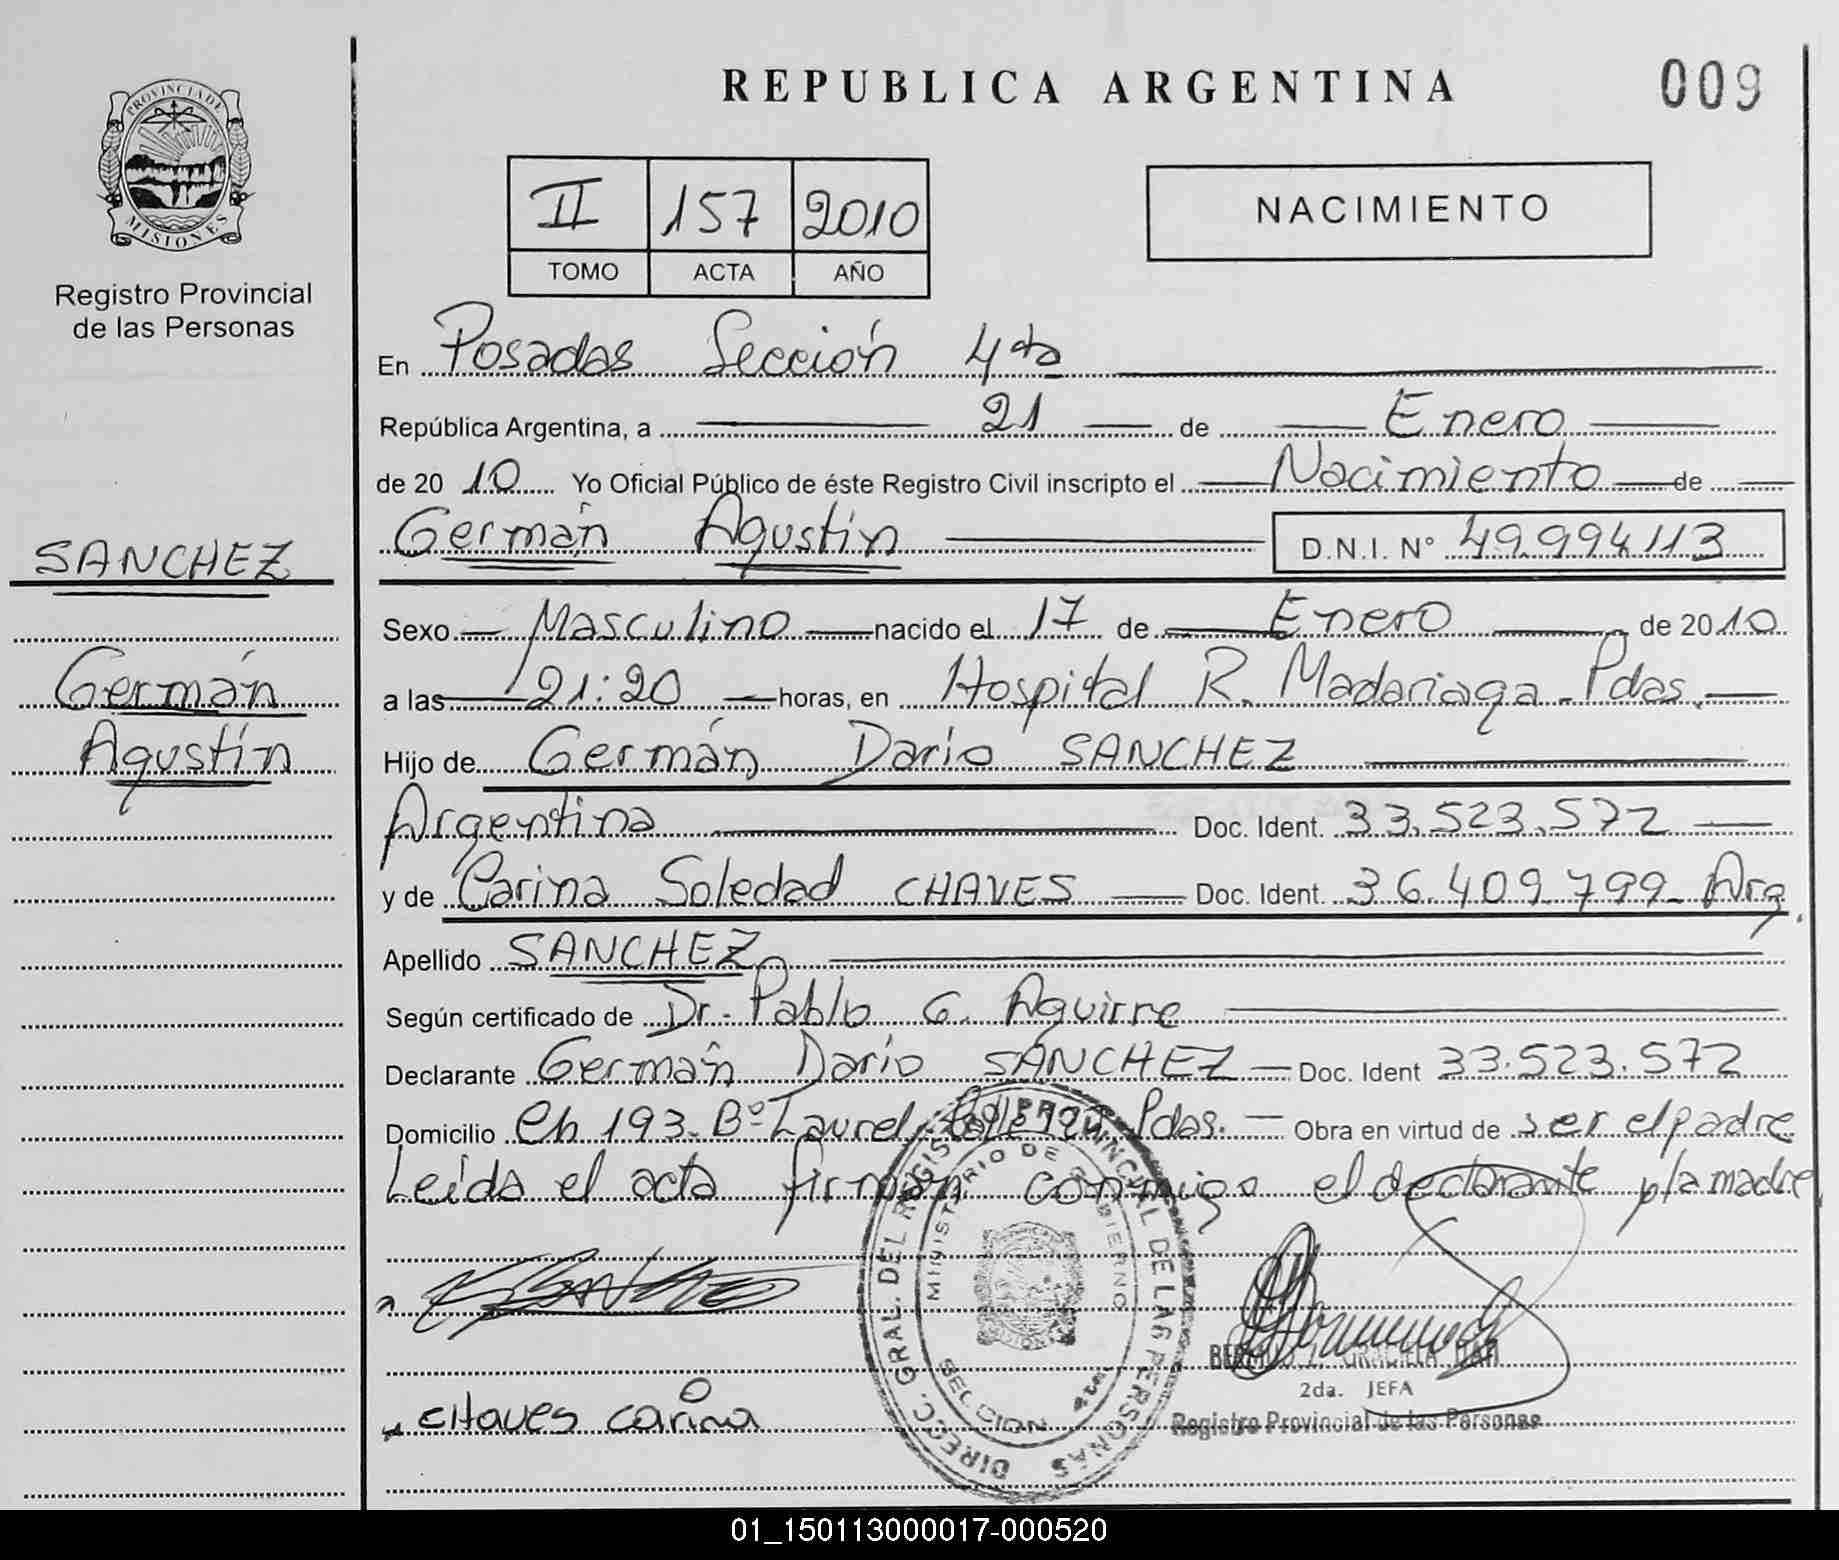 PROVINCIA DE
MISIONES
Registro Provincial
de las Personas
SANCHEZ
Germán
Agustín
REPUBLICA ARGENTINA
009
II 157 2010
TOMO ACTA AÑO
NACIMIENTO
En Posadas Sección 4ta
República Argentina, a 21 de Enero
de 2010 Yo Oficial Público de éste Registro Civil inscripto el Nacimiento de
Germán Agustín D.N.I. N° 49.994113
Sexo Masculino nacido el 17 de Enero de 2010
a las 21:20 horas, en Hospital R. Madariaga - Pdas.
Hijo de Germán Dario SANCHEZ
Argentina Doc. Ident. 33.523.572
y de Carina Soledad CHAVES Doc. Ident. 36.409.799 - Arg.
Apellido SANCHEZ
Según certificado de Dr. Pablo G. Aguirre
Declarante Germán Darío SANCHEZ Doc. Ident 33.523.572
Domicilio Ch 193 - B° Laurel, Pdas. - Obra en virtud de ser el padre
Leída el acta firman conmigo el declarante y la madre
CHaves carina
DIRECC. GRAL. DEL REGISTRO PROVINCIAL DE LAS PERSONAS
MINISTERIO DE GOBIERNO
SECCION 4ta
GRACIELA
2da. JEFA
Registro Provincial de las Personas
01_150113000017-000520